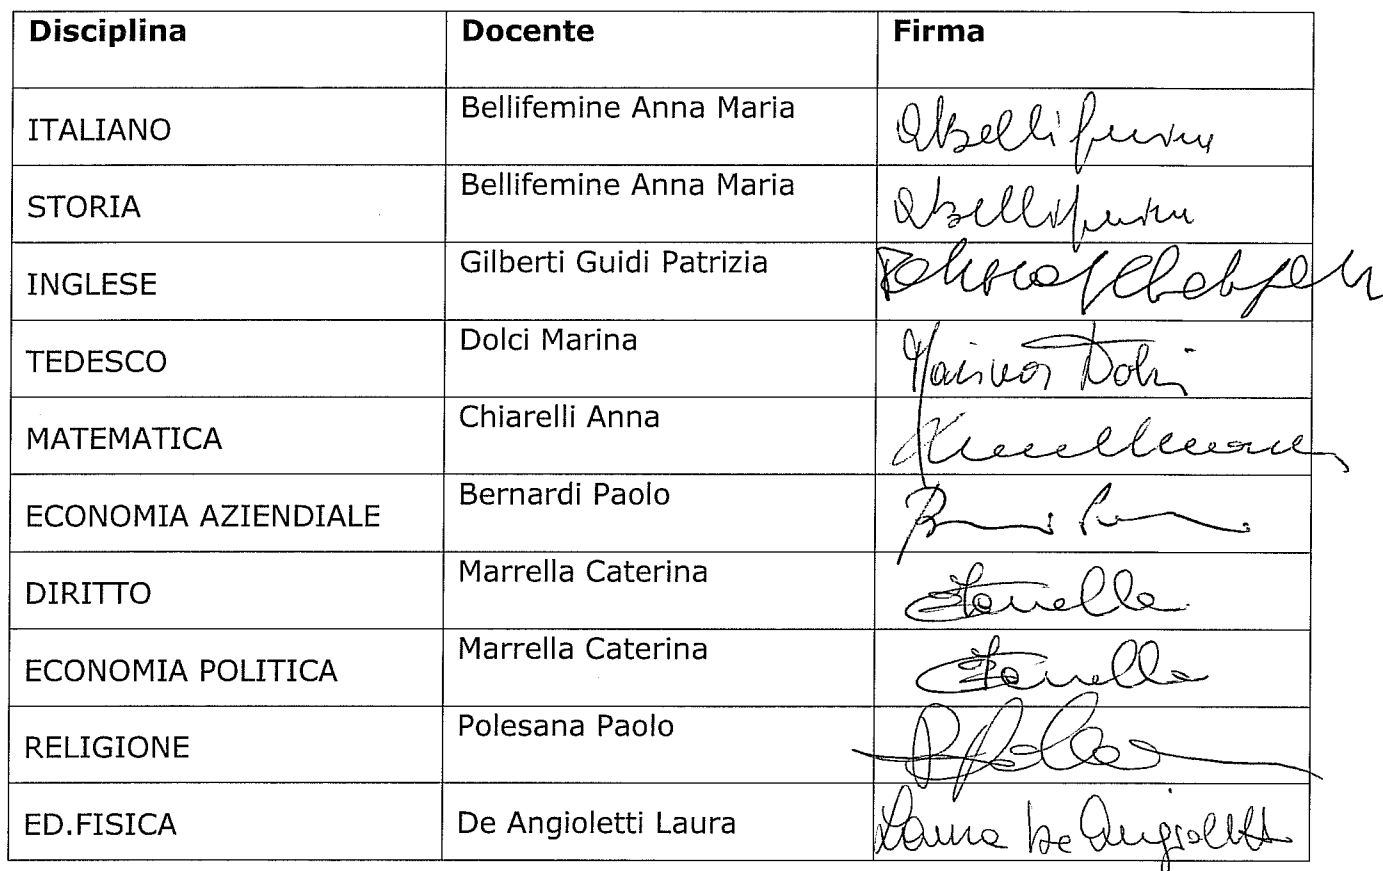 Disciplina Docente Firma
ITALIANO Bellifemine Anna Maria ABellifemine
STORIA Bellifemine Anna Maria ABellifemine
INGLESE Gilberti Guidi Patrizia
TEDESCO Dolci Marina Marina Dolci
MATEMATICA Chiarelli Anna
ECONOMIA AZIENDIALE Bernardi Paolo
DIRITTO Marrella Caterina
ECONOMIA POLITICA Marrella Caterina
RELIGIONE Polesana Paolo
ED.FISICA De Angioletti Laura Laura De Angioletti